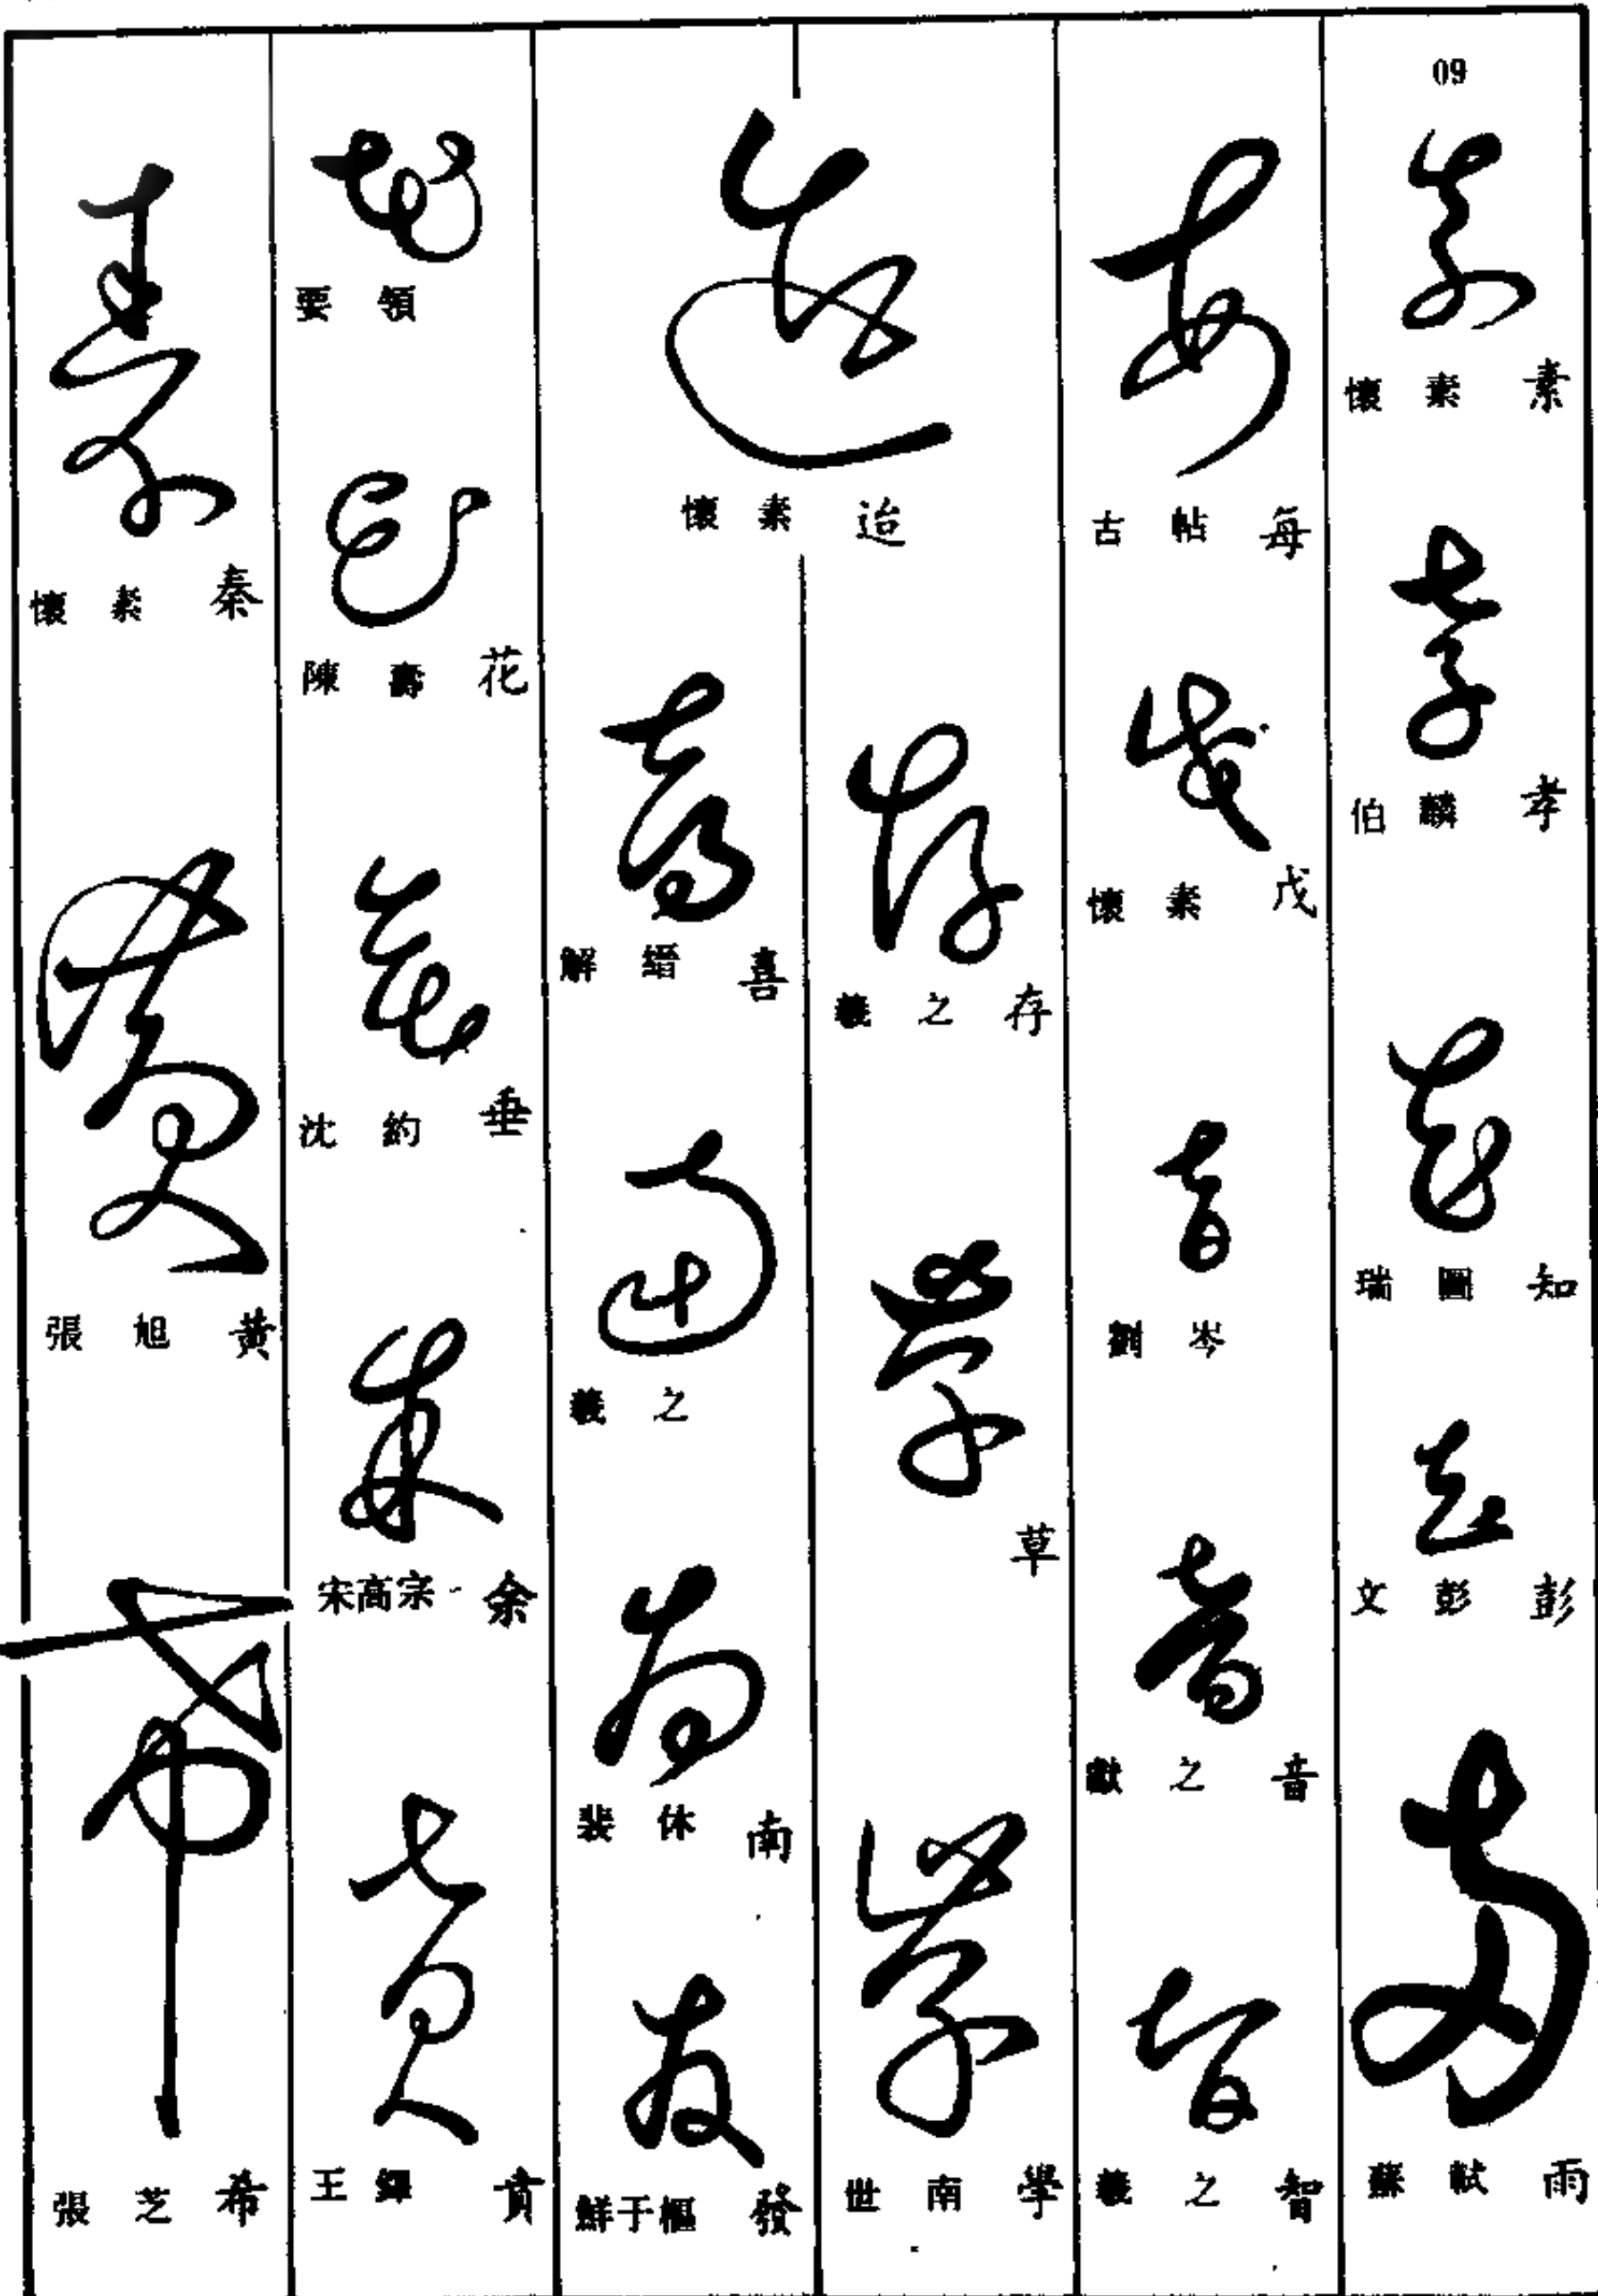 60
懷素 素
伯麟 孝
瑞圖 知
文彭 彭
蘇軾 雨
古帖 每
懷素 戊
劉岑
獻之 音
羲之 智
懷素 迨
羲之 存
草
世南 學
解縉 喜
羲之
裴休 南
鮮于樞 發
要領
陳壽 花
沈約 垂
宋高宗 余
王鐸 賁
懷素 秦
張旭 黃
張芝 希